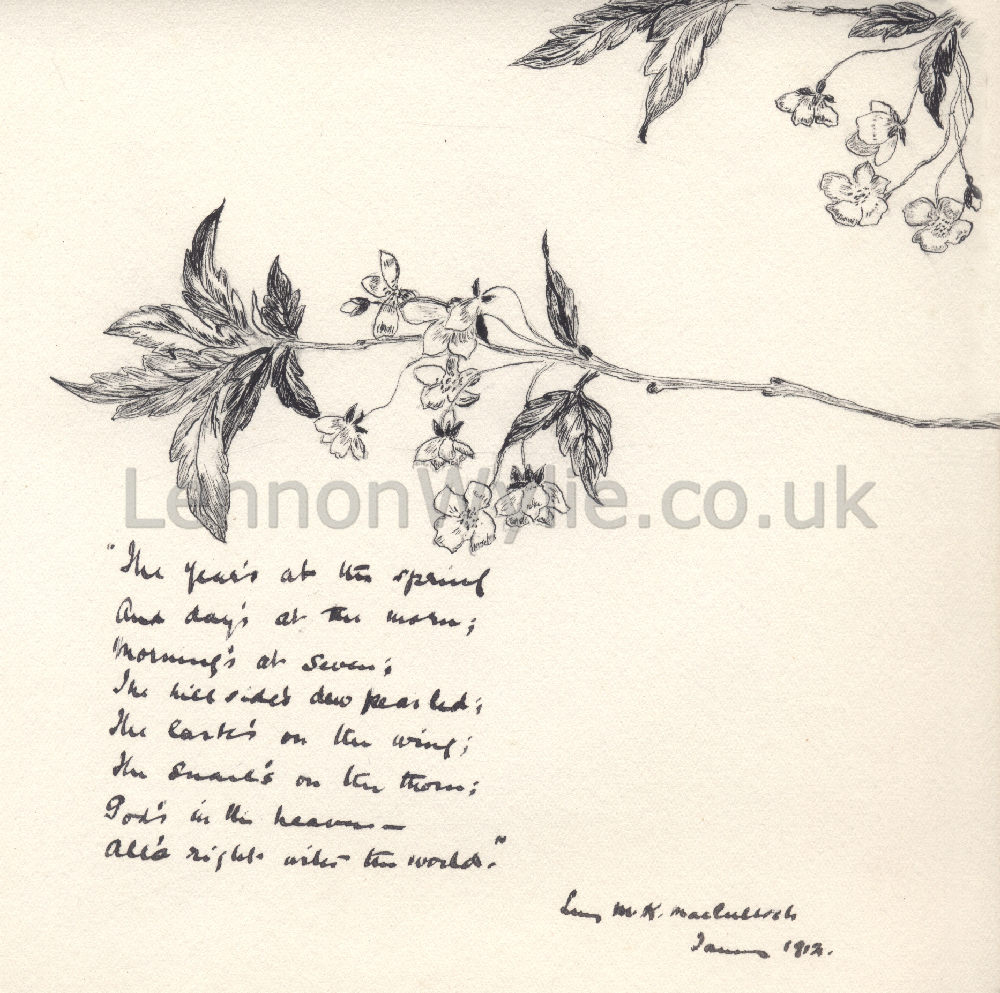 LennonWylie.co.uk
"The year's at the spring
And day's at the morn;
Morning's at seven;
The hill side's dew pearled;
The lark's on the wing;
The snail's on the thorn;
God's in his heaven—
All's right with the world."
M. K. MacCulloch
1912.